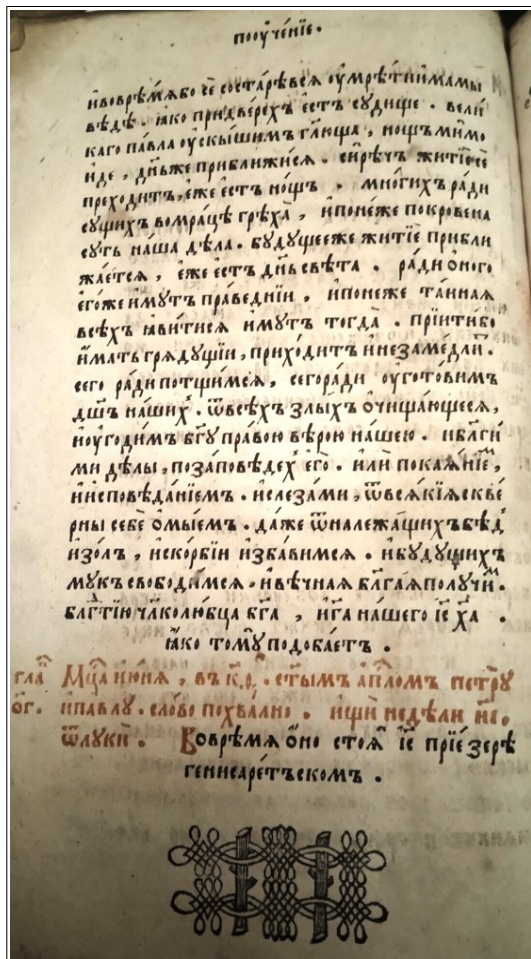 поꙋче́нїе.
ивовре́мѧбо сѐ соста́рѣвсѧ оу҆мрѣ́тиимамы
вѣ́дѣ. ꙗ҆́ко придве́рехъ є҆́стъ сꙋ́дище. вели́
каго па́вла оу҆слы́шимъ гл҃юща, но́щъ ми́мо
и҆́де, дн҃ьже прибли́жисѧ. си́рѣчъ житїѐ сѐ
прехо́дитъ, є҆́же є҆́стъ но́щъ. мно́гихъ ра́ди
сꙋ́щихъ вомра́цѣ грѣха̀, и҆поне́же покрове́на
сꙋ́ть на́ша дѣ́ла. бꙋ́дꙋщееже житїѐ прибли
жа́етсѧ, є҆́же є҆́стъ дн҃ь свѣ́та. ра́ди ѻ҆́ного
є҆го́же и҆́мꙋтъ пра́веднїи, и҆поне́же та́йнаѧ
всѣ́хъ ꙗ҆ви́тисѧ и҆́мꙋтъ тогда̀. прїити́бо
и҆́мать грѧдꙋ́щїи, прихо́дитъ и҆незаме́длитъ.
сего̀ ра́ди потщи́мсѧ, сегора́ди оу҆гото́вимъ
дш҃ъ на́шихъ. ѿвсѣ́хъ злы́хъ ѻ҆чища́ющесѧ,
и҆оу҆годи́мъ бг҃ꙋ пра́вою вѣ́рою на́шею. и҆бл҃ги́
ми дѣ́лы, поза́повѣдехъ є҆го̀. и҆лѝ покаѧ́нїемъ,
и҆и҆сповѣ́данїемъ. и҆слеза́ми, ѿвсѧ́кїѧ скве́
рны себѐ ѻ҆мы́емъ. да́же ѿналежа́щихъ бѣ́дъ
и҆зо́лъ, и҆ско́рбїи и҆зба́вимсѧ. и҆бꙋ́дꙋщихъ
мꙋ́къ свободи́мсѧ. и҆вѣ́чнаѧ бл҃га́ѧ полꙋчи́мъ.
бл҃гтїю чл҃колю́бца бг҃а, и҆гд҃а на́шего і҆с҃ х҃а.
ꙗ҆́ко томꙋ̀ подоба́етъ.
гла́в Мц҃а и҆ю́нѧ, въ к҃ѳ. ст҃ымъ а҆пⷭ҇ломъ петрꙋ̀
ѻ҃г. и҆па́влꙋ. сло́во похва́лно. и҆щѝ недѣ́ли и҃і.
ѿлꙋкѝ. Вовре́мѧ ѻ҆́но стоѧ̀ і҆с҃ прїе́зерѣ
гениcаре́тъскомъ.